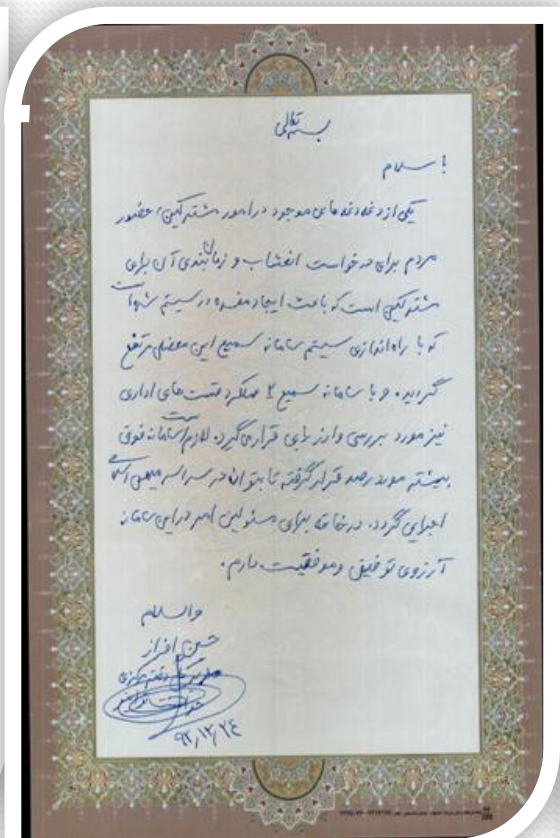 بسمه تعالی
با سلام
یکی از دغدغه های موجود در امور مشترکین، حضور
مردم برای درخواست انشعاب و زمانبندی آن برای
مشترکین است که باعث ایجاد مفسده در سیستم شده است
که با راه اندازی سیستم سامانه سمیع این معضل مرتفع
گردیده و با سامانه سمیع ۲ عملکرد قسمت های اداری
نیز مورد بررسی و ارزیابی قرار می گیرد. لازم است سامانه فوق
بیشتر مورد رصد قرار گرفته تا بتوان در سراسر میهن اسلامی
اجرایی گردد. در خاتمه برای مسئولین امر در این سامانه
آرزوی توفیق و موفقیت دارم.
والسلام
حسن افراز
مدیرکل دفتر مرکزی
حراست
۹۲,۱۲,۲۴